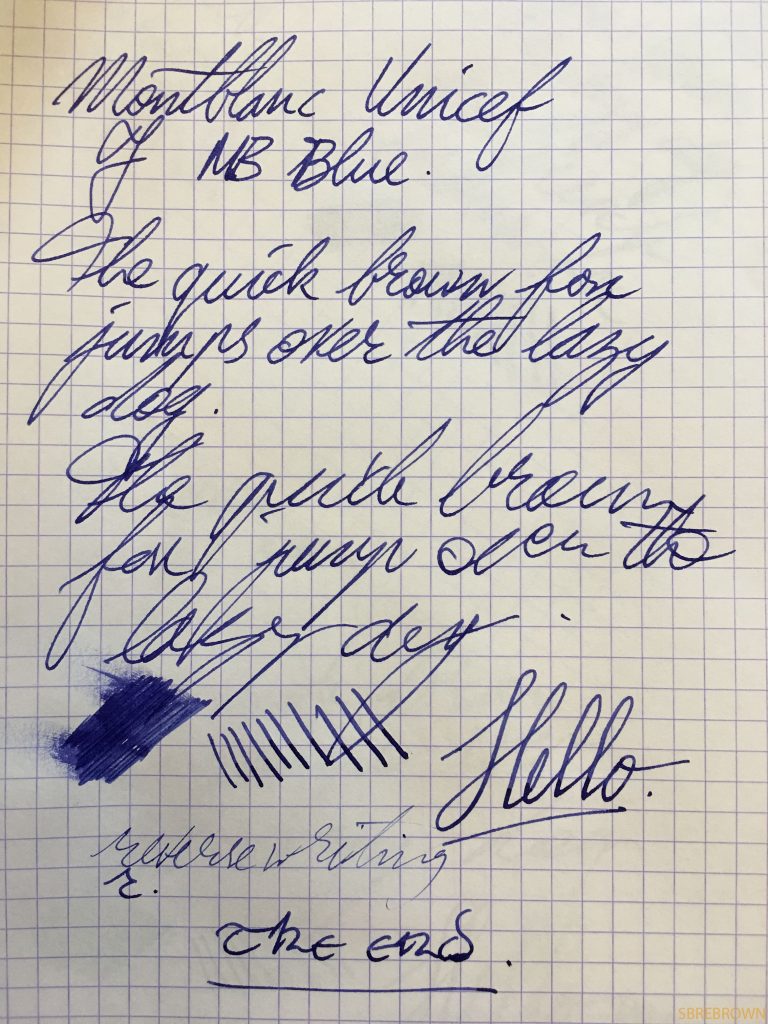 Montblanc Unicef
F MB Blue.
The quick brown fox
jumps over the lazy
dog.
The quick brown
fox jump over the
lazy dog .
Hello.
reverse writing
r.
The end.
SBREBROWN